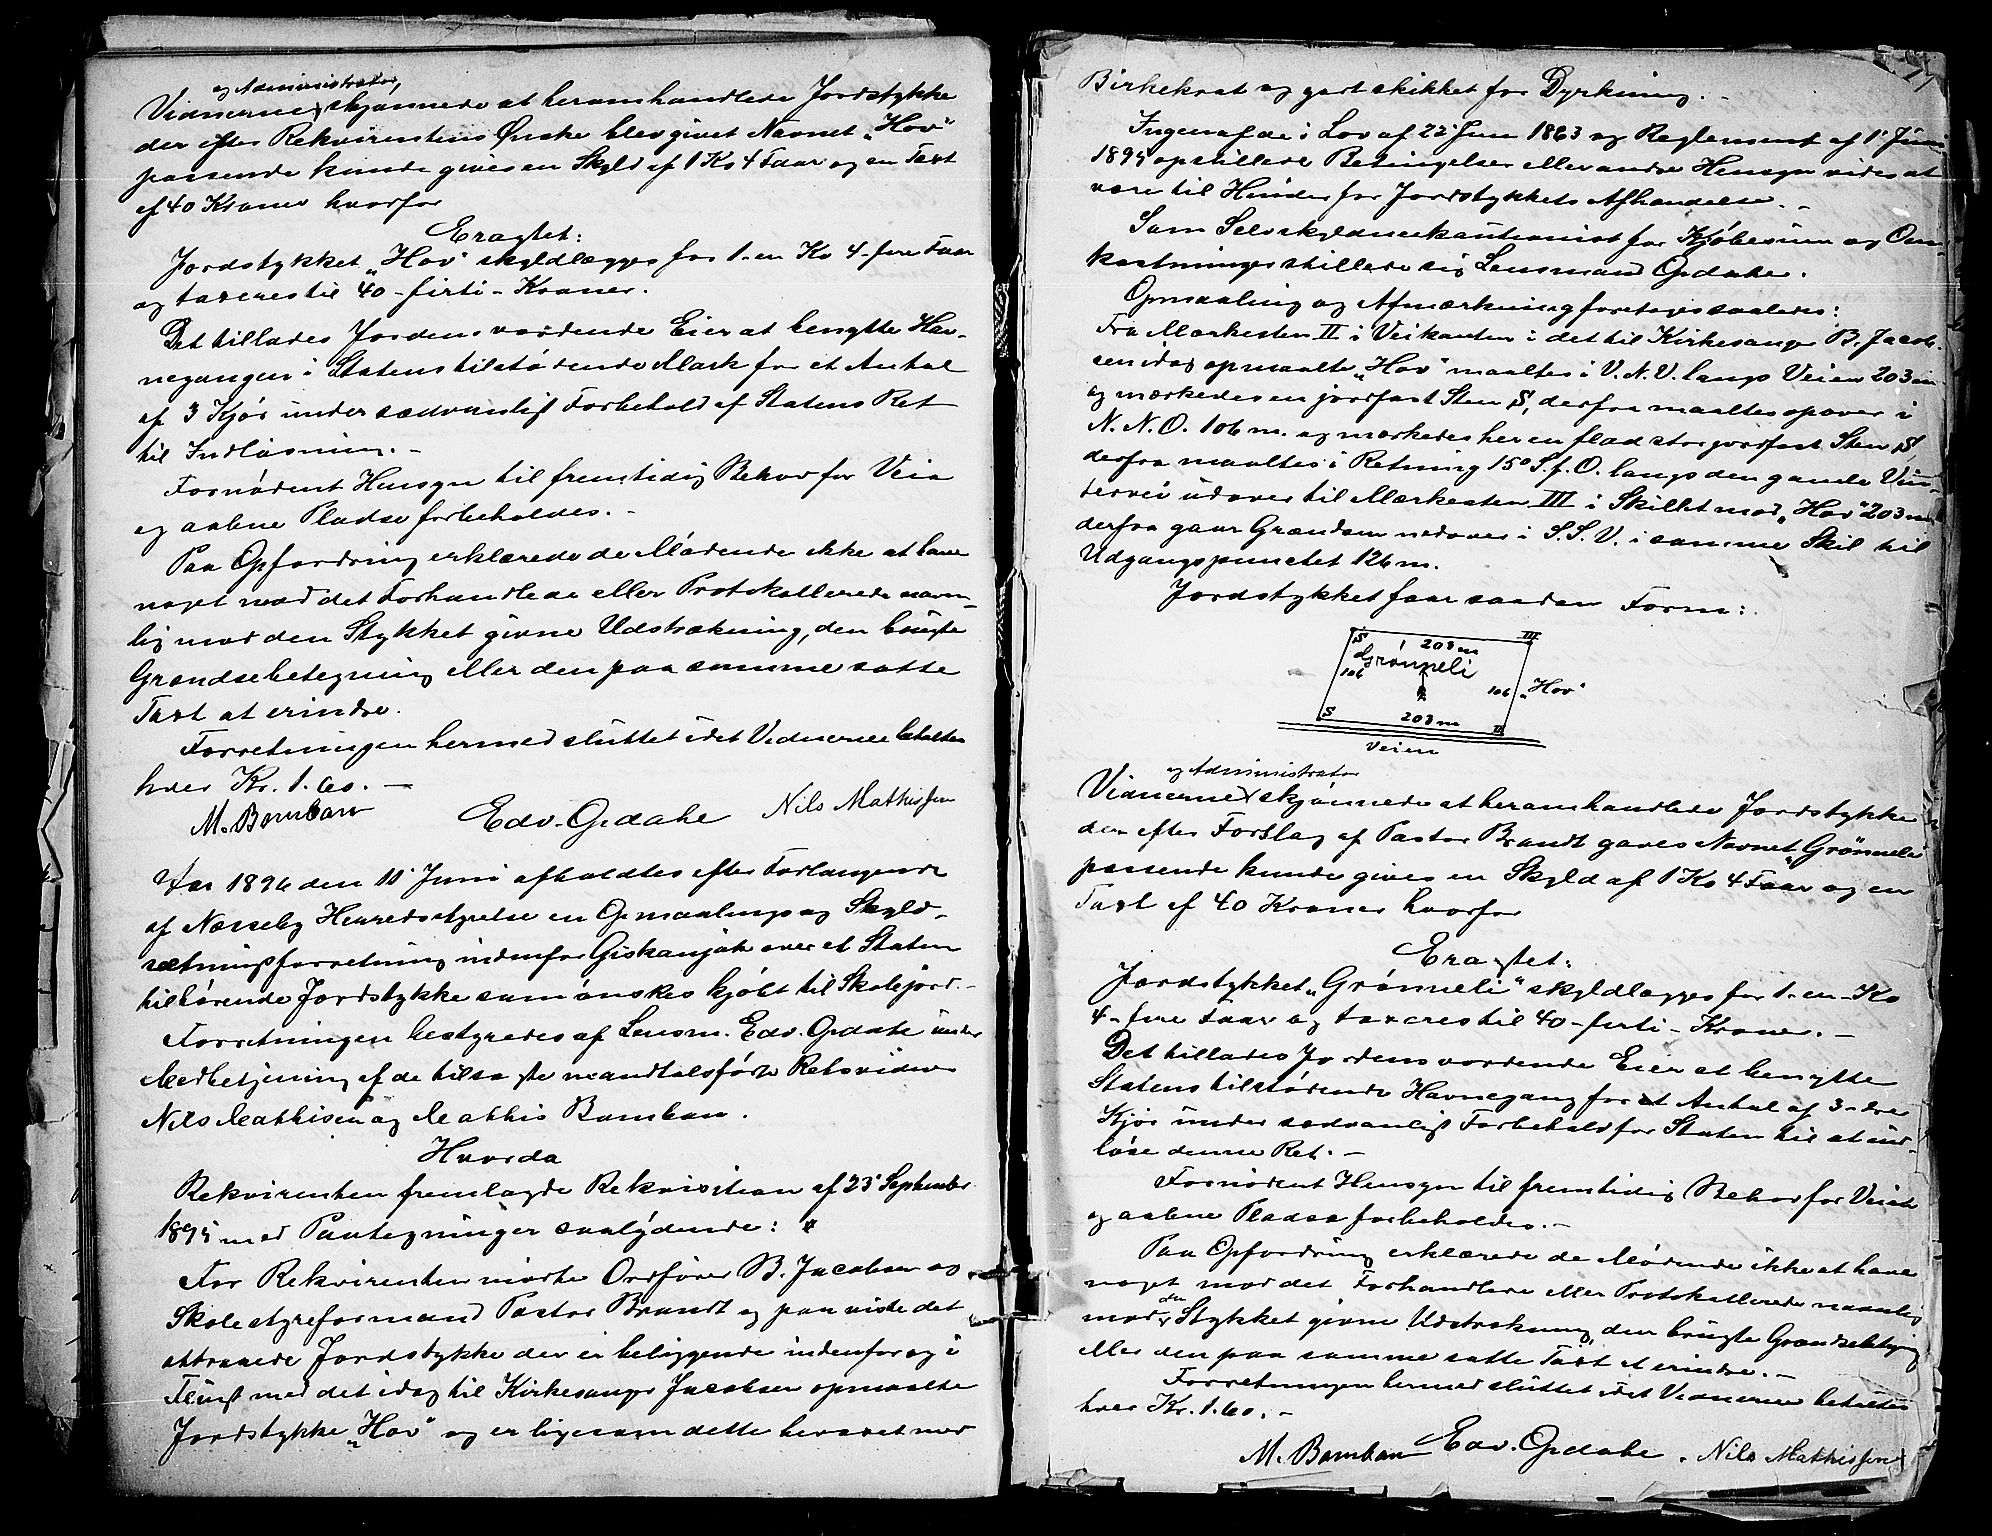 og Administrator,
Vidnerne skjønnede at heromhandlede Jordstykke
der efter Rekvirentens Ønske blev givet Navnet „Hov"
passende kunde gives en Skyld af 1 Ko 4 Faar og en Taxt
af 40 Kroner hvorfor
Eragtet:
Jordstykket „Hov" skyldlægges for 1-en Ko 4-fire Faar
og taxeres til 40-firti-Kroner.
Det tillades Jordens vordende Eier at benytte Hav-
negangen i Statens tilstødende Mark for et Antal
af 3 Kjør under sædvanligt Forbehold af Statens Ret
til Indløsning.-
Fornødent Hensyn til fremtidig Behov for Veie
og aabne Pladse forbeholdes.-
Paa Opfordring erklærede de Mødende ikke at have
noget mod det Forhandlede eller Protokollerede navn-
lig mod den Stykket givne Udstrækning, den brugte
Grændsebetegning eller den paa samme satte
Taxt at erindre.
Forretningen hermed sluttet idet Vidnerne betaltes
hver Kr. 1.60.-
M. Bomban Edv. Opdahl Nils Mathissen
Aar 1896 den 11' Juni afholdtes efter Forlangende
af Næsseby Herredsstyrelse en Opmaalings og Skyld-
sætningsforretning indenfor Giskanjok over et Staten
tilhørende Jordstykke som ønskes kjøbt til Skolejord.-
Forretningen bestyredes af Lensm. Edv. Opdahl under
Medbetjening af de tilsagte mandtalsførte Retsvidner
Nils Mathisen og Mathis Bomban.
Hvorda
Rekvirenten fremlagde Rekvisition af 23' September
1895 med Paategninger saalydende: "
For Rekvirenten mødte Ordfører B. Jacobsen og
Skolestyreformand Pastor Brandt og paaviste det
attraaede Jordstykke der er beliggende indenfor og i
Flugt med det idag til Kirkesanger Jacobsen opmaalte
Jordstykke „Hov" og er ligesom dette bevoxet med
Birkekrat og godt skikket for Dyrkning.-
Ingen af de i Lov af 22' Juni 1863 og Reglement af 1' Juni
1895 opstillede Betingelser eller andre Hensyn vides at
være til Hinder for Jordstykkets Afhændelse.-
Som Selvskyldnerkautionist for Kjøbesum og Om-
kostninger stillede sig Lensmand Opdahl.
Opmaaling og Afmærkning foretoges saaledes:
Fra Mærkesten II i Veikanten i det til Kirkesanger B. Jacob-
sen idag opmaalte „Hov" maaltes i V.N.V. langs Veien 203 m
og mærkedes en jordfast Sten S, derfra maaltes opover i
N.N.O. 106 m. og mærkedes her en flad stor jordfast Sten S,
derfra maaltes i Retning 15° S.f.O. langs den gamle Vin-
tervei udover til Mærkesten III i Skillet mod „Hov" 203 m
derfra gaar Grændsen nedover i S.S.V. i samme Skil til
Udgangspunctet 126 m.
Jordstykket faar saadan Form:
S 203 m III
Grønneli
106 106 „Hov"
S 203 m II
Veien
og Administrator
Vidnerne skjønnede at heromhandlede Jordstykke
der efter Forslag af Pastor Brandt gaves Navnet „Grønneli"
passende kunde gives en Skyld af 1 Ko 4 Faar og en
Taxt af 40 Kroner hvorfor
Eragtet:
Jordstykket „Grønneli" skyldlægges for 1-en-Ko
4-fire Faar og taxeres til 40-firti-Kroner.-
Det tillades Jordens vordende Eier at benytte
Statens tilstødende Havnegang for et Antal af 3-tre
Kjør under sædvanligt Forbehold for Staten til at ind-
løse denne Ret.-
Fornødent Hensyn til fremtidig Behov for Veie
og aabne Pladse forbeholdes.-
Paa Opfordring erklærede de Mødende ikke at have
noget mod det Forhandlede eller Protokollerede navnlig
den
mod Stykket givne Udstrækning, den brugte Grændsebetegning
eller den paa samme satte Taxt at erindre.-
Forretningen hermed sluttet idet Vidnerne betaltes
hver Kr. 1.60.-
M. Bomban Edv. Opdahl. Nils Mathissen